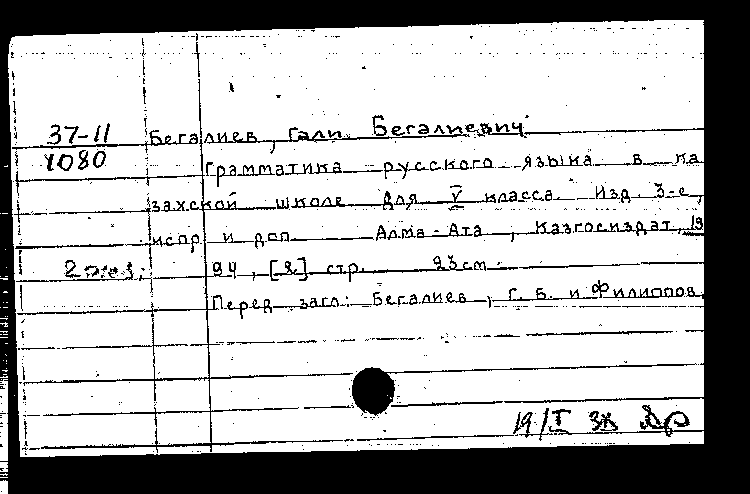 37-11
1080
Бегалиев, Гали Бегалиевич
Грамматика русского языка в ка
захской школе для V класса. Изд. 3-е,
испр. и доп. Алма-Ата, Казгосиздат, 19
94, [2] стр. 23 см.
Перед загл.: Бегалиев, Г. Б. и Филиппов,
19/I